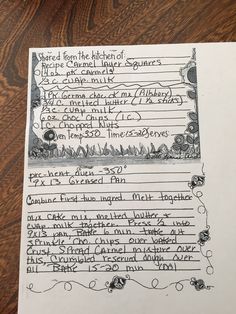 Shared from the kitchen of:
Recipe Carmel Layer Squares
14 oz. pk carmels
1/3 c. evap. milk
1 pk Germa choc. ck mx (Pillsbury)
3/4 c. melted butter (1 1/2 sticks)
1/3 c. evap. milk
oz choc chips (1 c.)
1 c. chopped nuts
Oven Temp 350 Time: Serves:
pre-heat oven - 350°
9 x 13 Greased Pan
Combine first two ingred. Melt together
mix cake mix, melted butter &
evap. milk together. Press 1/2 into
9x13 pan. Bake 6 min. take out
Sprinkle cho. chips over baked
Crust. Spread Carmel mixture over
this, Crumbled reserved dough over
all Bake 15-20 min